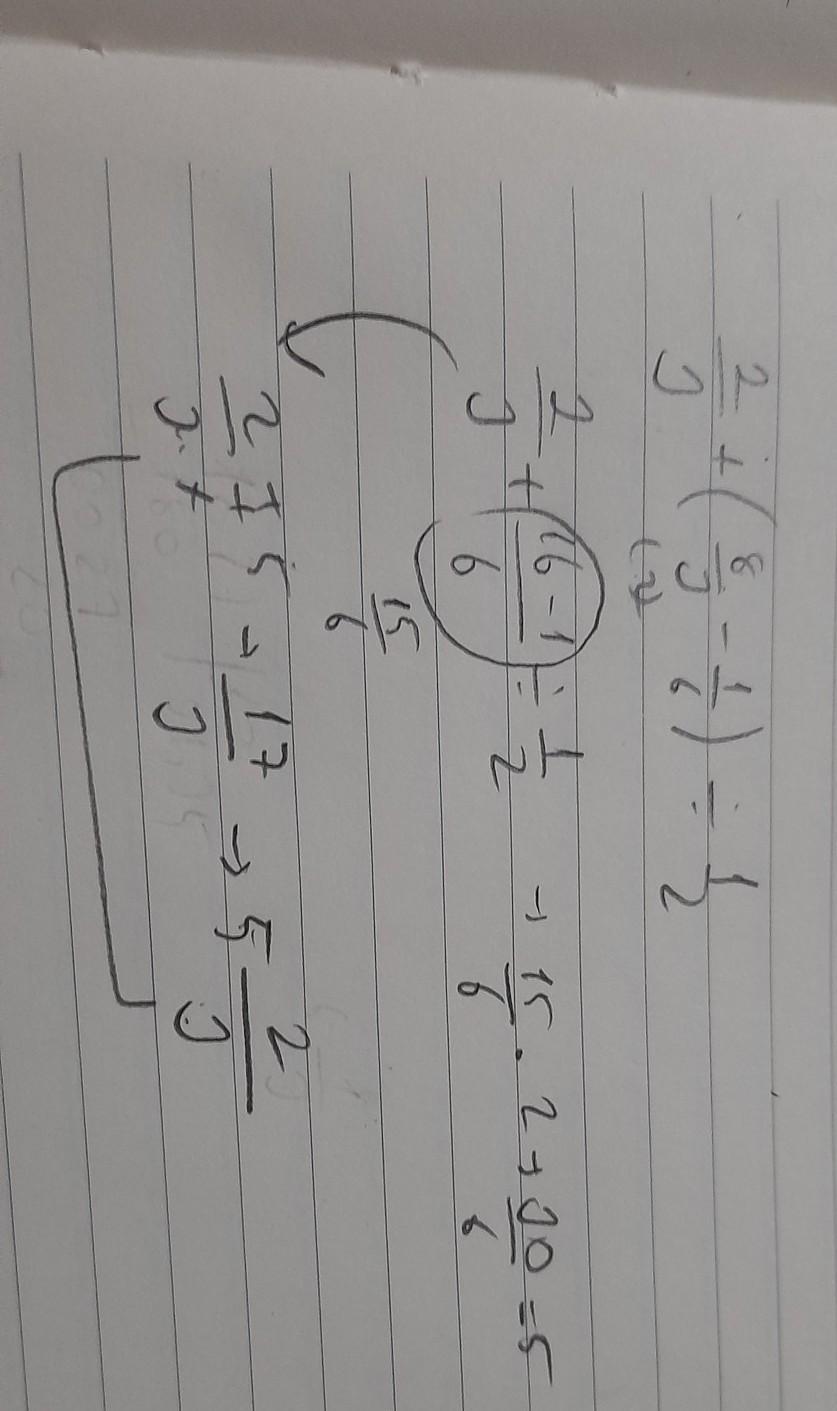 2/3 + (8/3 - 1/6) ÷ 1/2
(2)
2/3 + (16-1)/6 ÷ 1/2 → 15/6 . 2 → 30/6 = 5
15/6
2/3 + 5 → 17/3 → 5 2/3